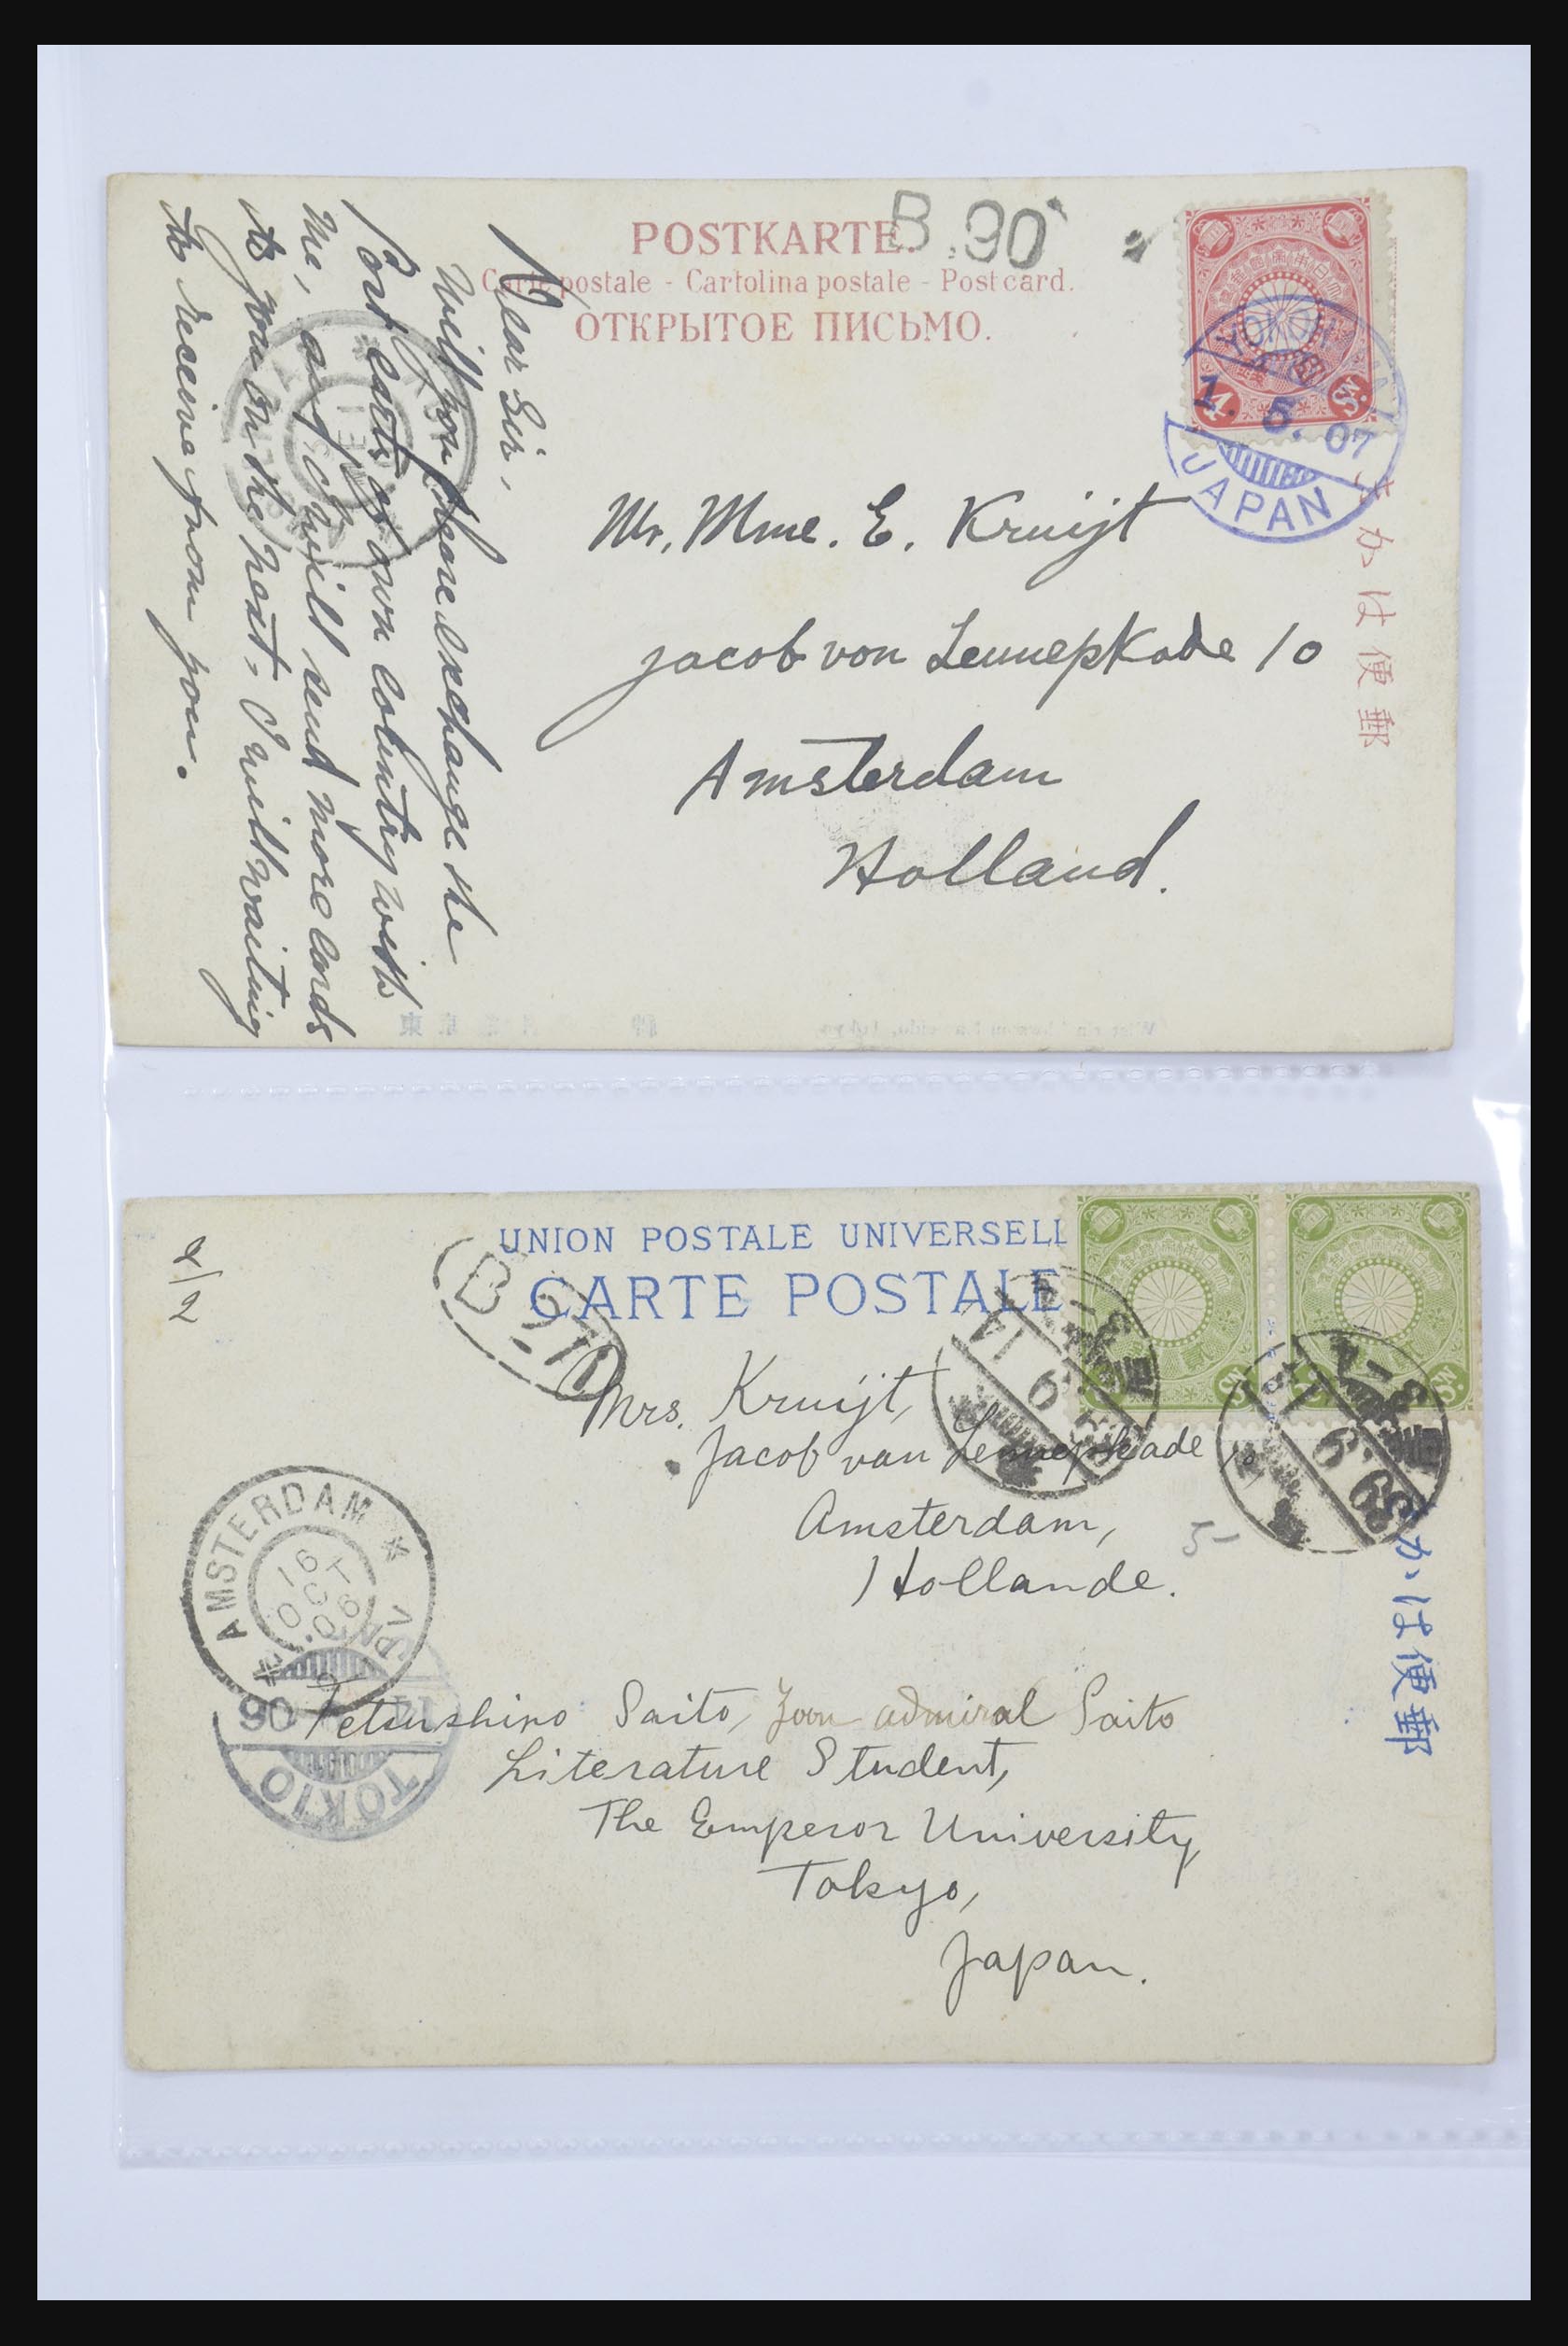 POSTKARTE.
B.90
Carte postale - Cartolina postale - Postcard.
ОТКРЫТОЕ ПИСЬМО.
4 Sn.
YOKOHAMA
1. 5. 07
JAPAN
郵便はかき
Mr. Mme. E. Kruijt
Jacob von Lennepkade 10
Amsterdam
Holland.
Dear Sir,
Will you please exchange the
Post cards of own country with
me, and I will send more cards
to you on the next, I will waiting
to receive from you.
UNION POSTALE UNIVERSELL
CARTE POSTALE
2/2
B 71
Mrs. Kruijt,
Jacob van Lennepkade 10,
Amsterdam,
Hollande.
5-
39.9.14
39.9.14
郵便はか
AMSTERDAM
16 OCT 06
TOKIO
06
Tetsushiro Saito, Zoon admiral Saito
Literature Student,
The Emperor University
Tokyo,
Japan.